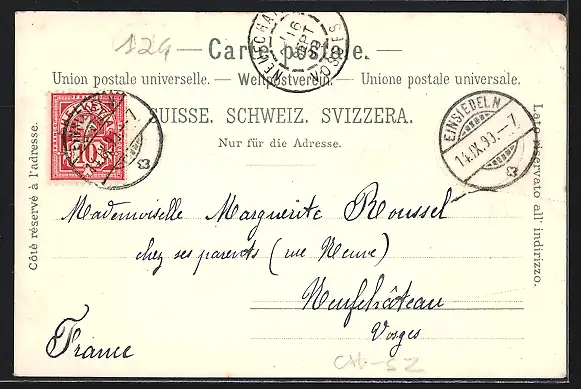 129
— Carte postale. —
Union postale universelle. — Weltpostverein. — Unione postale universale.
SUISSE. SCHWEIZ. SVIZZERA.
Nur für die Adresse.
Côté réservé à l'adresse.
Lato riservato all' indirizzo.
10
EINSIEDELN
14.IX.99.—7
16
SEPT
99
VOSGES
Mademoiselle Marguerite Roussel
chez ses parents (rue Neuve)
Neufchâteau
Vosges
France